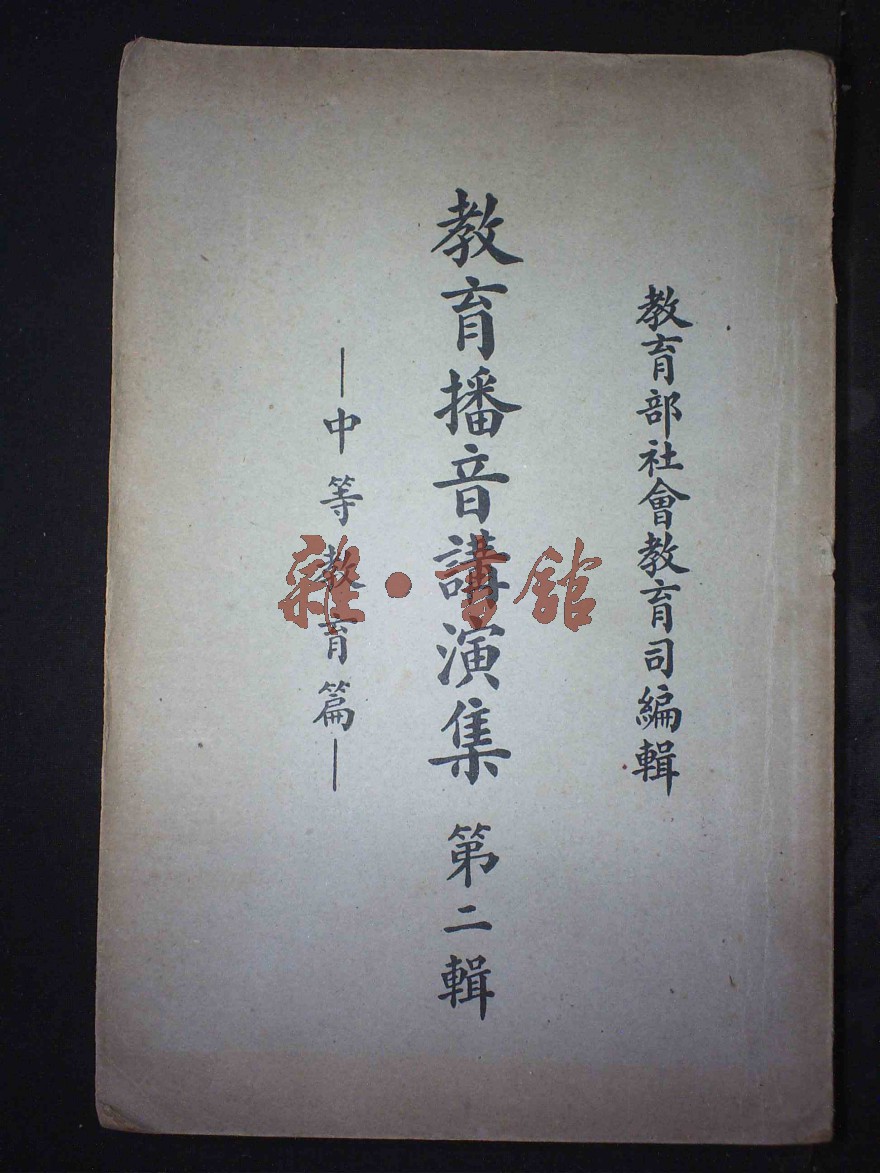 教育部社會教育司編輯
教育播音講演集 第二輯
—中等教育篇—
雜·書館